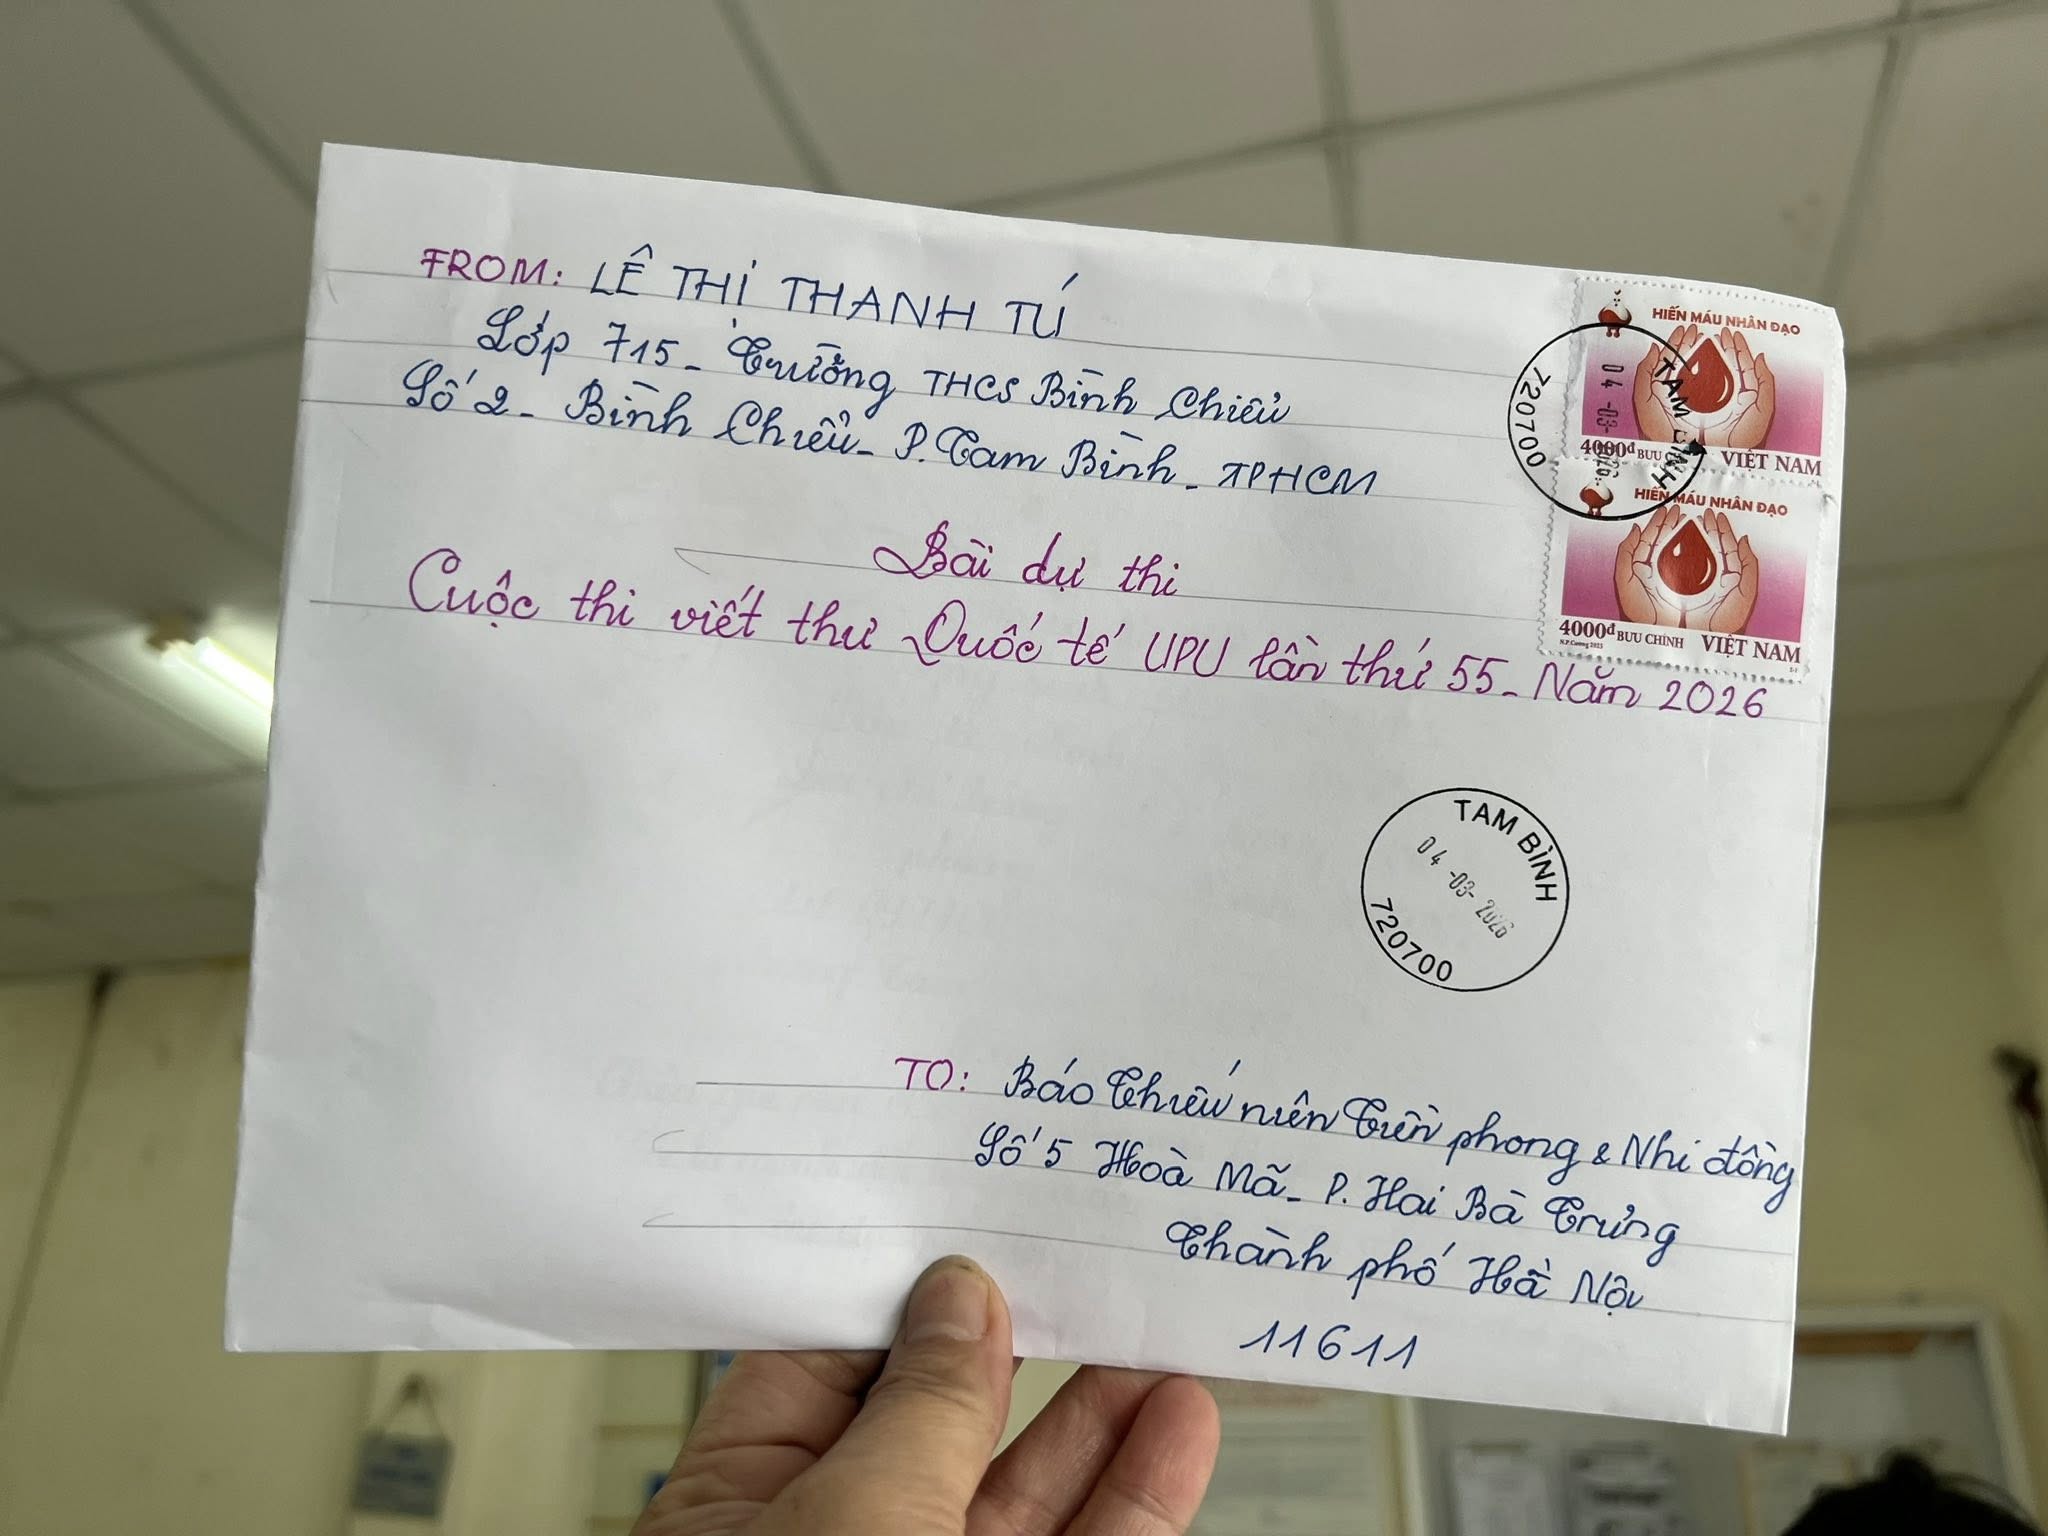 FROM: LÊ THỊ THANH TÚ
Lớp 715 - Trường THCS Bình Chiểu
Số 2 - Bình Chiểu - P. Tam Bình - TPHCM
HIẾN MÁU NHÂN ĐẠO
TAM BÌNH
04-03-2026
720700
4000đ BƯU CHÍNH VIỆT NAM
HIẾN MÁU NHÂN ĐẠO
4000đ BƯU CHÍNH VIỆT NAM
N.P. Cương 2023
Bài dự thi
Cuộc thi viết thư Quốc tế UPU lần thứ 55 - Năm 2026
TAM BÌNH
04-03-2026
720700
TO: Báo Thiếu niên Tiền phong & Nhi đồng
Số 5 Hoà Mã - P. Hai Bà Trưng
Thành phố Hà Nội
11611